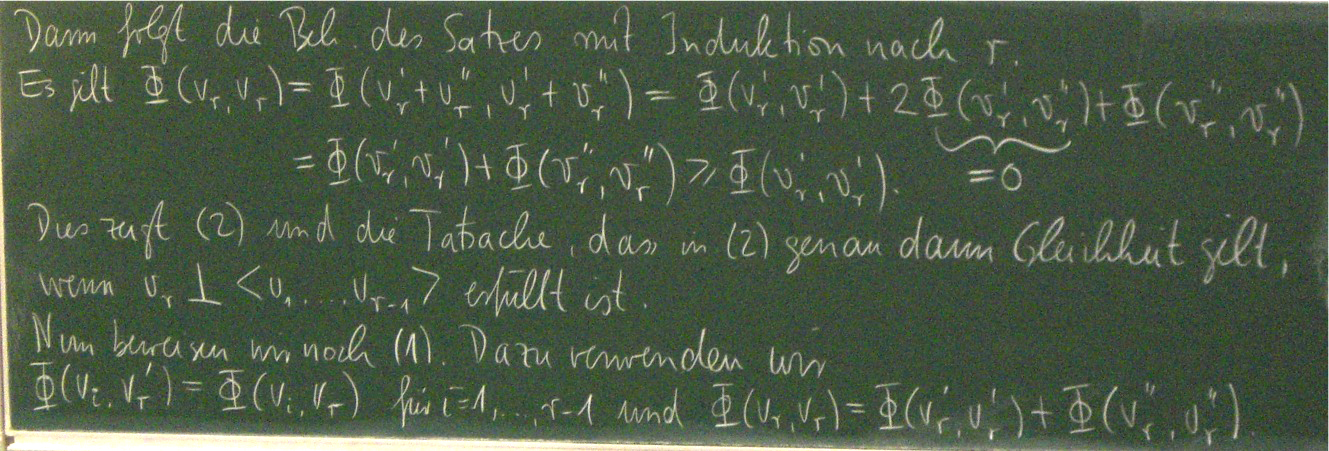 Dann folgt die Beh. des Satzes mit Induktion nach r.
Es gilt Φ(v_r, v_r) = Φ(v_r' + v_r'', v_r' + v_r'') = Φ(v_r', v_r') + 2Φ(v_r', v_r'') + Φ(v_r'', v_r'')
= Φ(v_r', v_r') + Φ(v_r'', v_r'') ≥ Φ(v_r', v_r'). =0
Dies zeigt (2) und die Tatsache, dass in (2) genau dann Gleichheit gilt,
wenn v_r ⊥ <v_1, ..., v_{r-1}> erfüllt ist.
Nun beweisen wir noch (1). Dazu verwenden wir
Φ(v_i, v_r') = Φ(v_i, v_r) für i=1,...,r-1 und Φ(v_r, v_r) = Φ(v_r', v_r') + Φ(v_r'', v_r'').